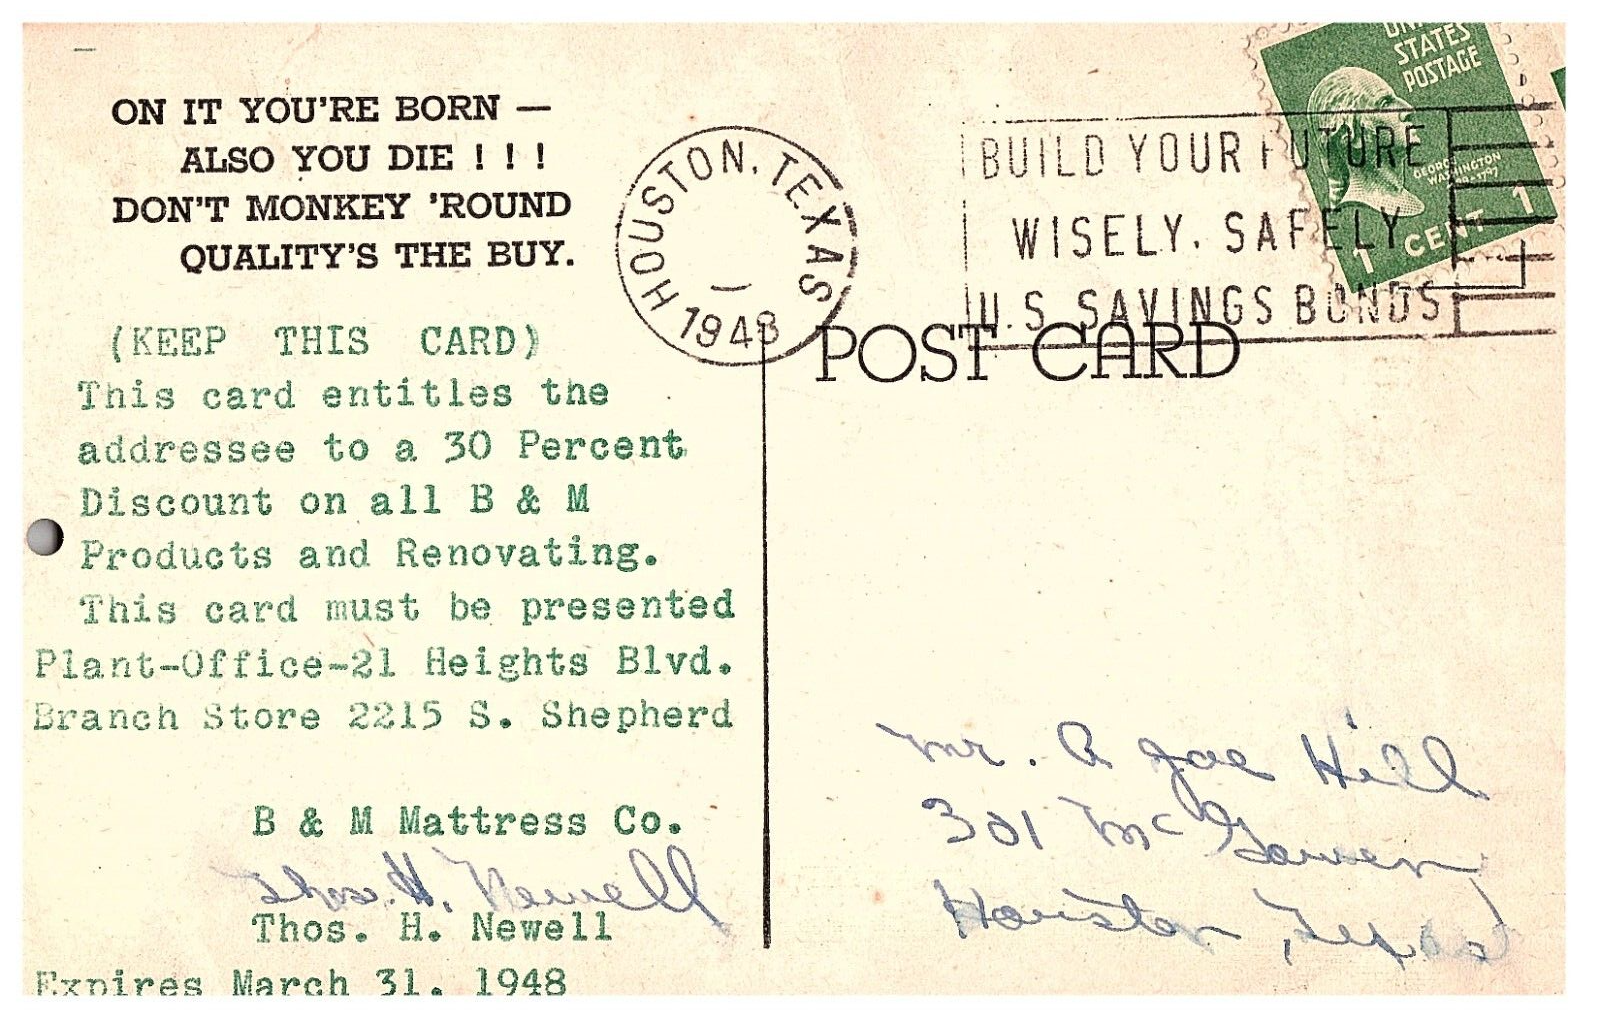 ON IT YOU'RE BORN —
ALSO YOU DIE ! ! !
DON'T MONKEY 'ROUND
QUALITY'S THE BUY.
(KEEP THIS CARD)
This card entitles the
addressee to a 30 Percent
Discount on all B & M
Products and Renovating.
This card must be presented
Plant-Office-21 Heights Blvd.
Branch Store 2215 S. Shepherd
B & M Mattress Co.
Thos. H. Newell
Thos. H. Newell
Expires March 31, 1948
HOUSTON, TEXAS
1948
BUILD YOUR FUTURE
WISELY. SAFELY
U.S. SAVINGS BONDS
UNITED
STATES
POSTAGE
GEORGE
WASHINGTON
1 CENT 1
POST CARD
Mr. A Joe Hill
301 McGowen
Houston, Texas